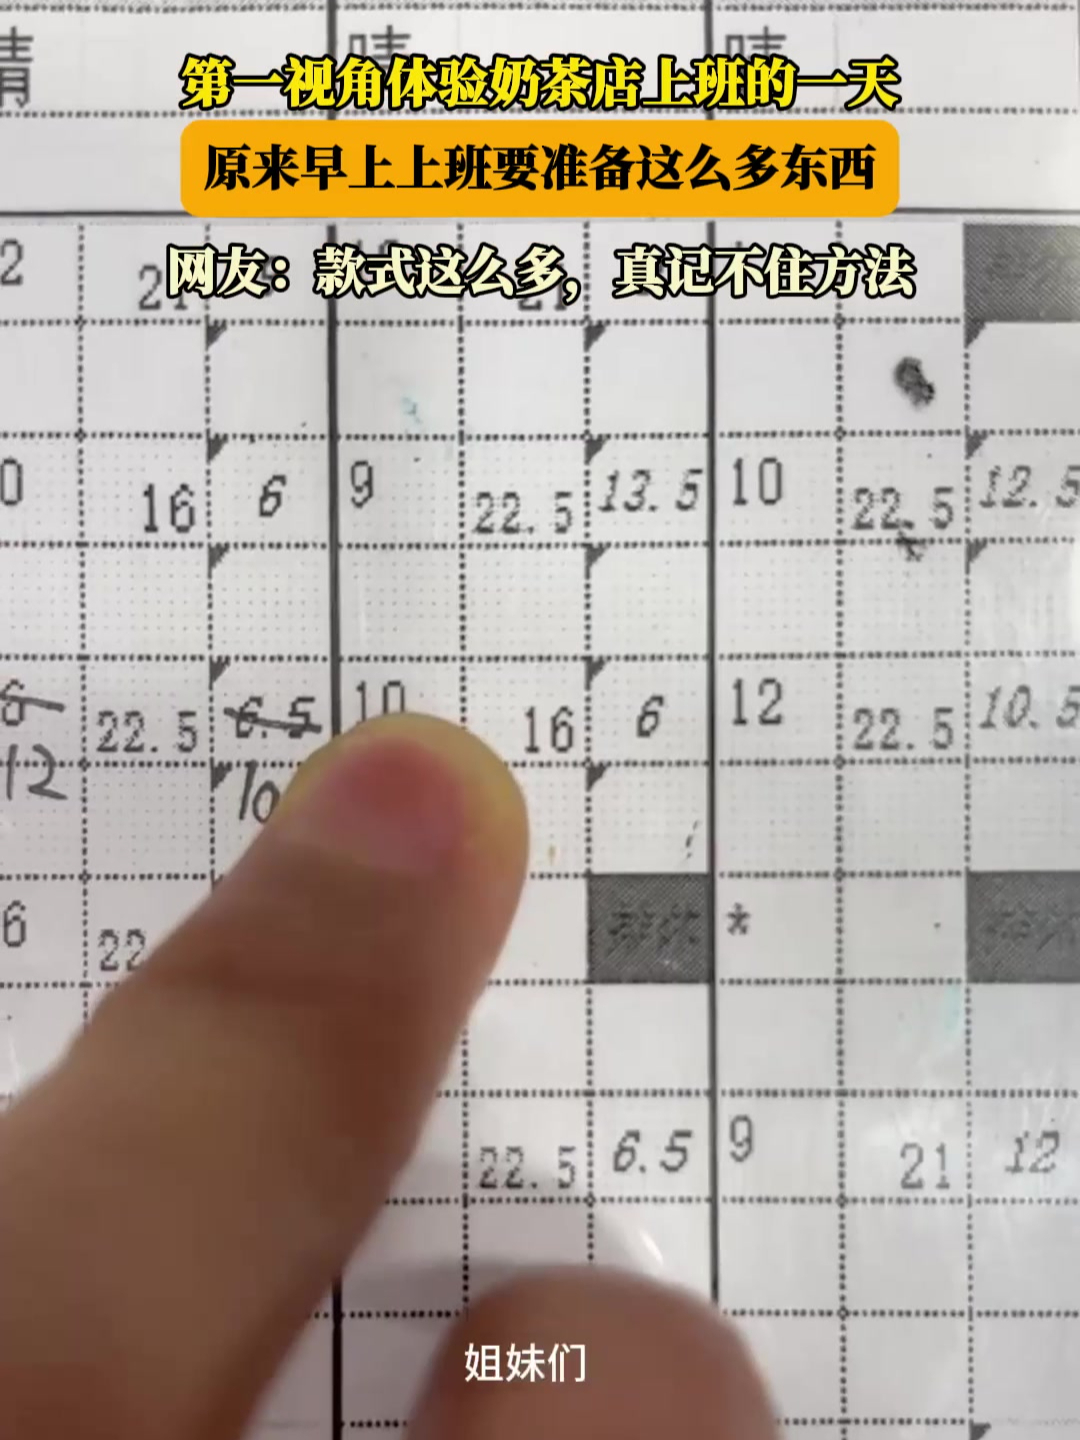 晴 晴 晴
第一视角体验奶茶店上班的一天
原来早上上班要准备这么多东西
网友：款式这么多，真记不住方法
2 21
16 6 9 22.5 13.5 10 22.5 12.5
22.5 6.5 10 16 6 12 22.5 10.5
12 10
6 22 *
22.5 6.5 9 21 12
姐妹们